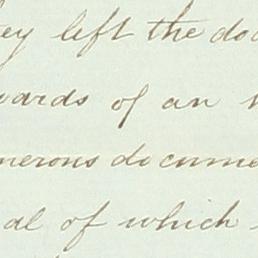 ey left the doc
wards of an
merous docume
al of which